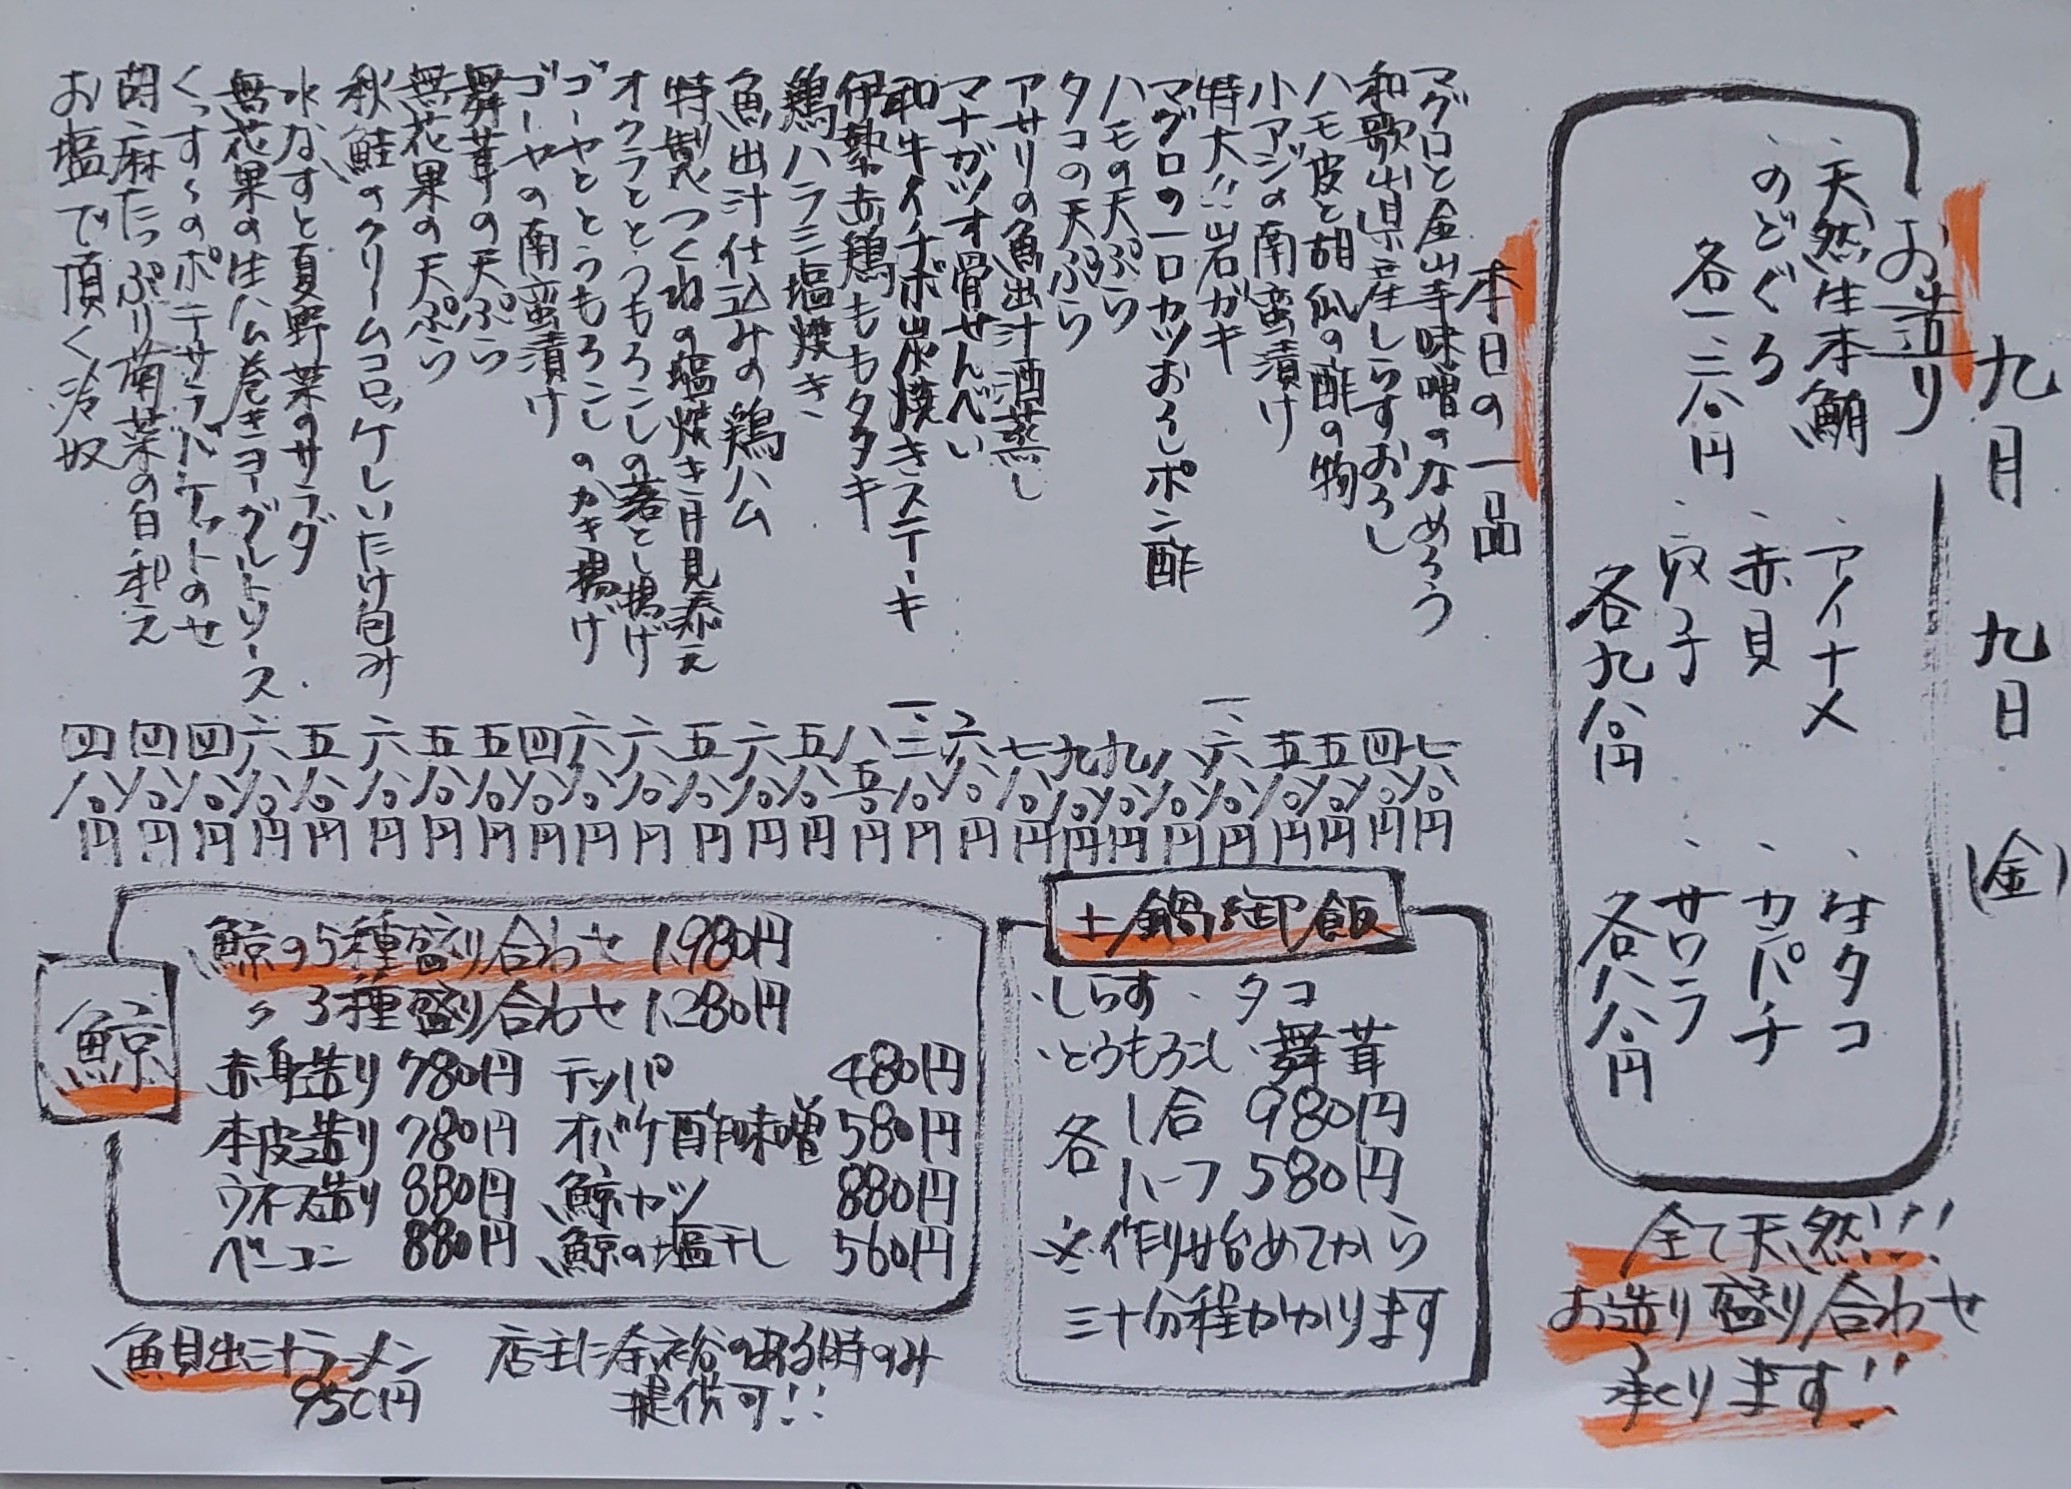 九月九日(金)
お造り
・天然生本鮪
・のどぐろ
各一、二八〇円
・アイナメ
・赤貝
・穴子
各九八〇円
・生タコ
・カンパチ
・サワラ
各八八〇円
全て天然!!!
お造り盛り合わせ
承ります!!
本日の一品
マグロと金山寺味噌のなめろう 七八〇円
和歌山県産しらすおろし 四八〇円
ハモ皮と胡瓜の酢の物 五八〇円
小アジの南蛮漬け 五八〇円
特大!!岩ガキ 一、六八〇円
マグロの一口カツおろしポン酢 八八〇円
ハモの天ぷら 九八〇円
タコの天ぷら 九八〇円
アサリの魚出汁酒蒸し 七八〇円
マナガツオ骨せんべい 六八〇円
和牛イチボ炭焼きステーキ 一、二八〇円
伊勢赤鶏ももタタキ 八五〇円
鶏ハラミ塩焼き 五八〇円
魚出汁仕込みの鶏ハム 六八〇円
特製つくねの塩焼き月見添え 五八〇円
オクラととうもろこしの落とし揚げ 六八〇円
ゴーヤととうもろこしのカキ揚げ 六八〇円
ゴーヤの南蛮漬け 四八〇円
舞茸の天ぷら 五八〇円
無花果の天ぷら 五八〇円
秋鮭のクリームコロッケしいたけ包み 六八〇円
水なすと夏野菜のサラダ 五八〇円
無花果の生ハム巻きヨーグルトソース 六八〇円
ポテサラバケットのせ 四八〇円
胡麻たっぷり菊菜の白和え 四八〇円
お塩で頂く冷奴 四八〇円
土鍋御飯
・しらす ・タコ
・とうもろこし ・舞茸
各 1合 980円
ハーフ 580円
※作り始めてから
三十分程かかります
鯨
鯨の5種盛り合わせ 1,980円
〃 3種盛り合わせ 1,280円
赤身造り 780円 テッパ 480円
本皮造り 780円 オバケ酢味噌 580円
ウネス造り 880円 鯨カツ 880円
ベーコン 880円 鯨の塩干し 560円
魚貝出汁ラーメン
950円
店主に余裕のある時のみ
提供可!!